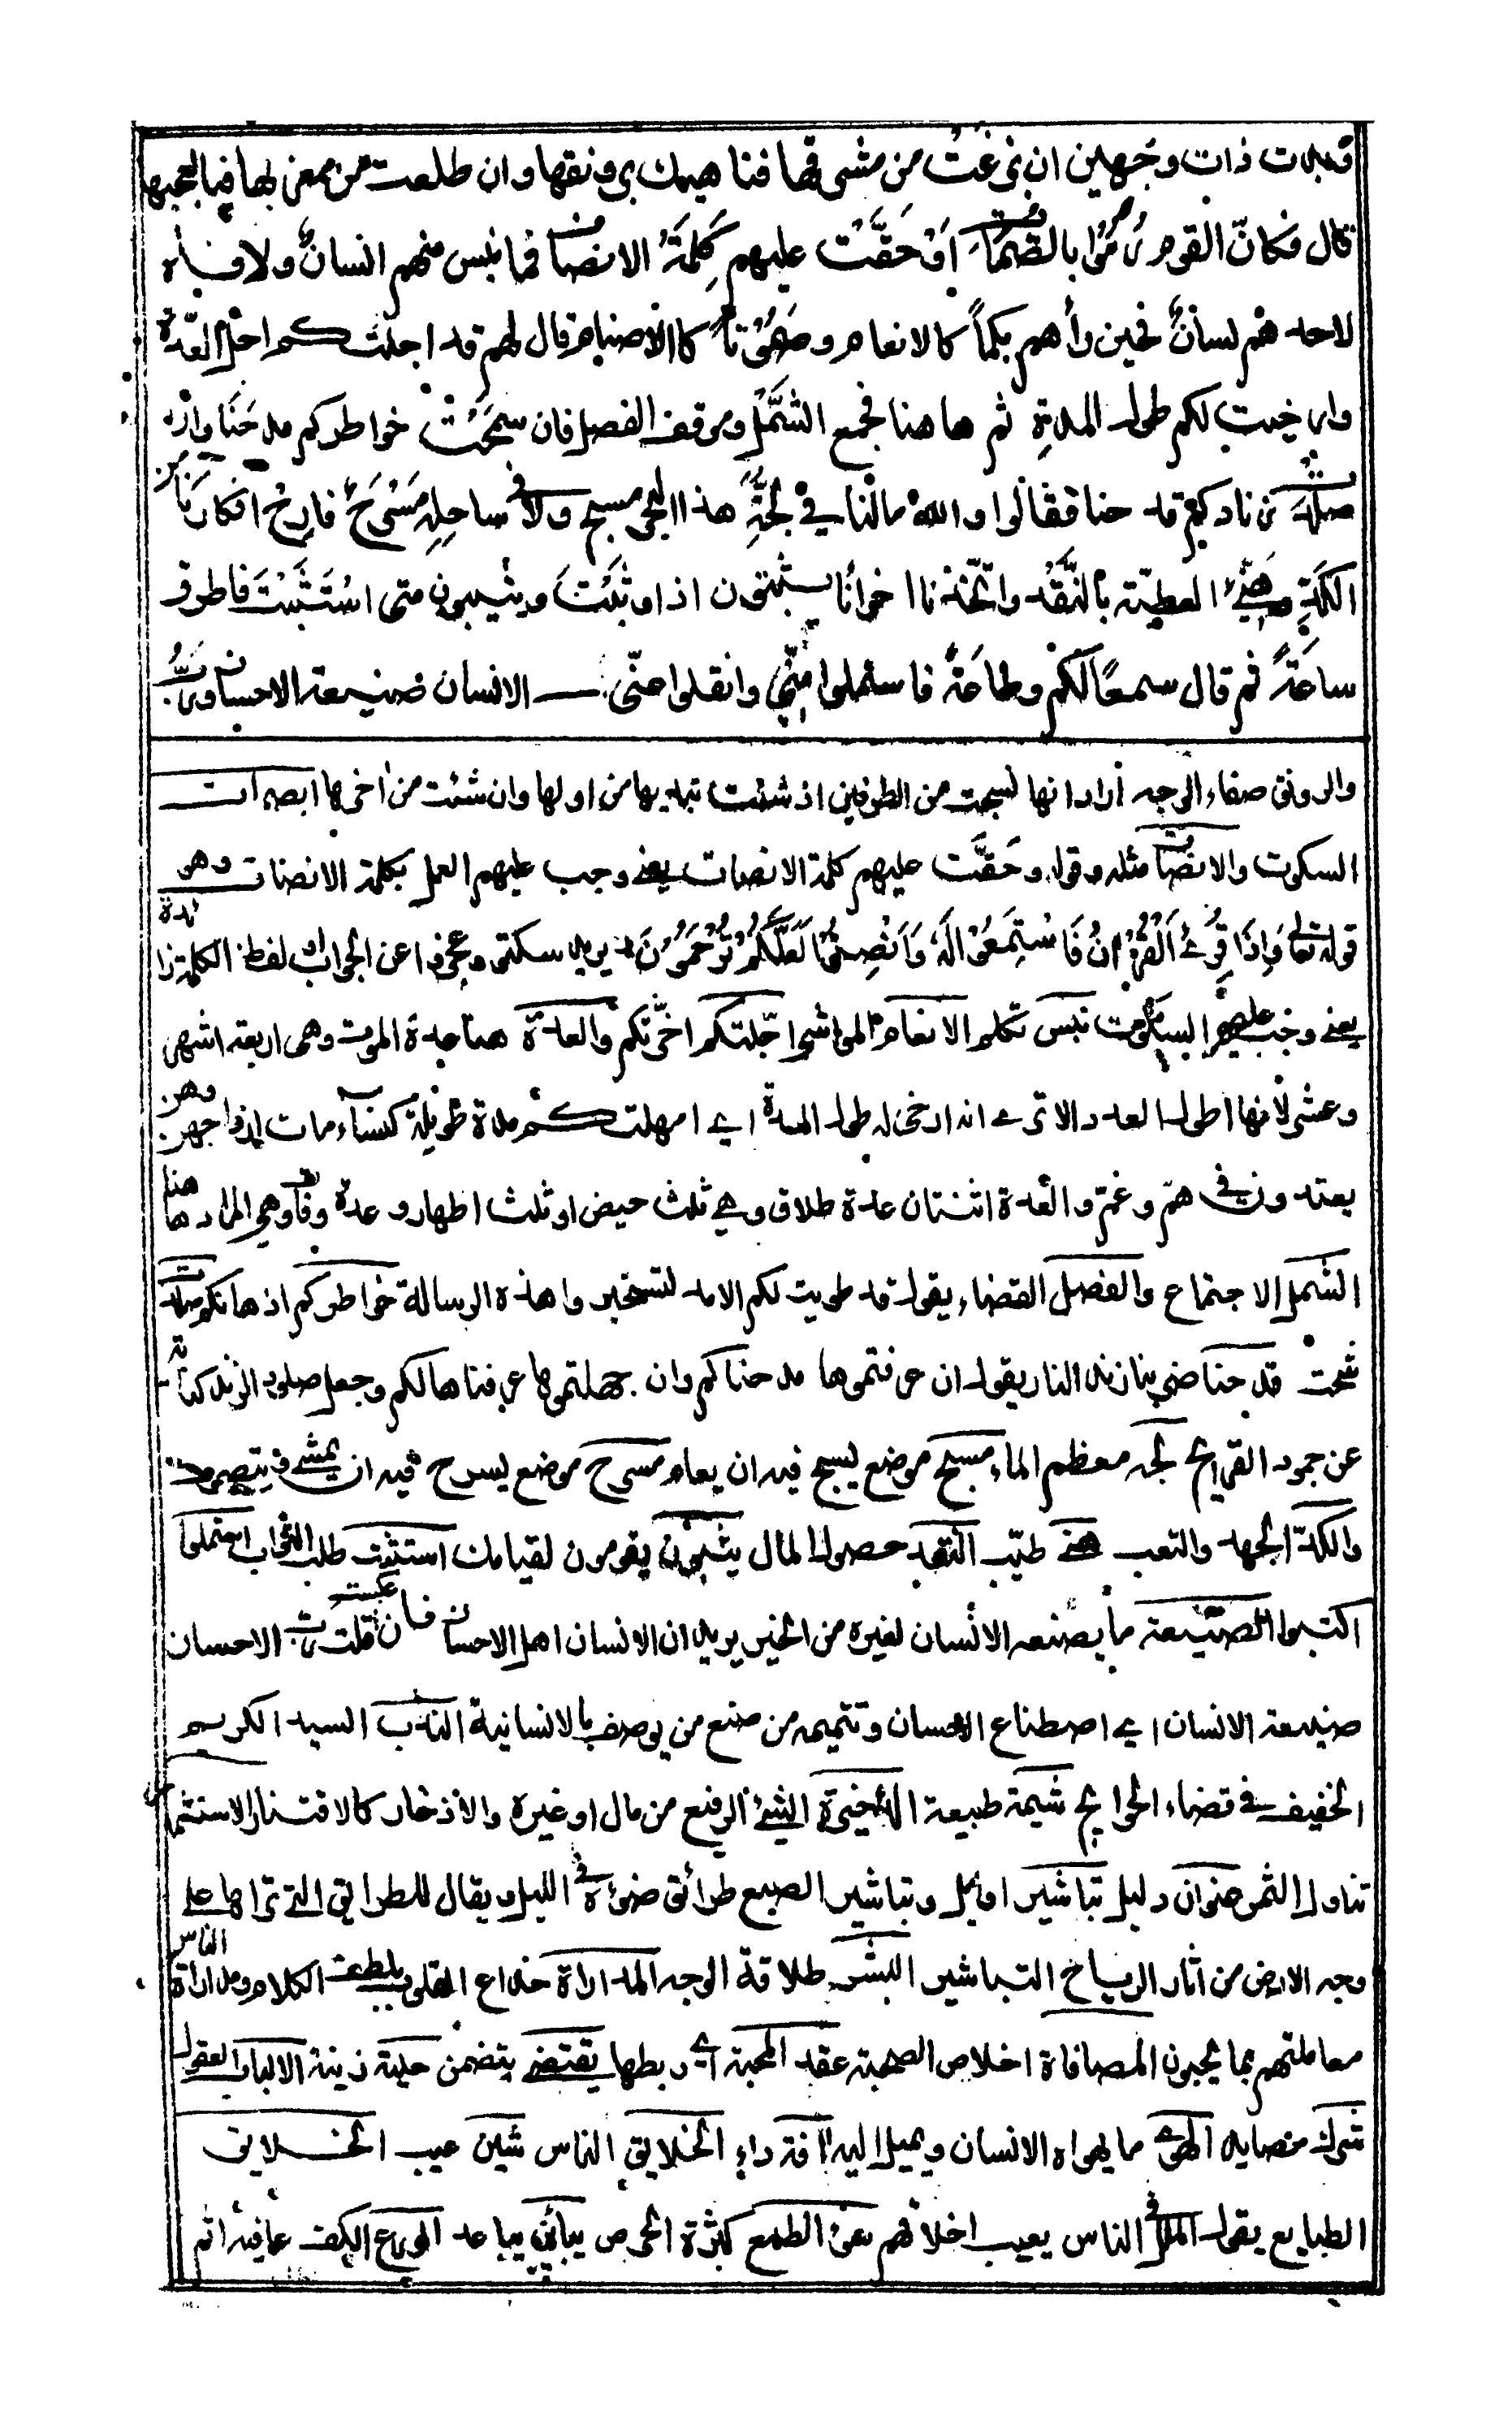 وبدت ذات وجهين ان بزغت من مشرقها فناهيك برونقها وان طلعت من مغربها فيا لعجبها
قال فكانّ القوم رُمُوا بالصُّمَات اَوْ حَقَّتْ عليهم كَلِمَةُ الانصات فما نبس منهم انسانٌ ولا فاه
لاحد هم لسانٌ فحين رأهم بكماً كالانعام وصُمُوْتاً كالاصنام قال لهم قد اجلتكم اجل العدّة
وارخيت لكم طول المدةِ ثم هاهنا مجمع الشَّمْل وموقف الفصل فان سمحَتْ خواطركم مدحنَا وان
صَلَدَت زنادكم قدحنا فقالوا واللهِ ما لنا في لُجَّةِ هذا البحر مسبح ولا في ساحِلِهٖ مَسْرَحٌ فارِحْ افكارَنَا من
الكَدِّ وهَنِّئ العطيّة بالنَّقْد واتّخذنا اخوانًا يثبون اذا وثَبْتَ ويثيبون متى اسْتَثَبْتَ فاطرق
ساعَةً ثم قال سمعًا لكم وطاعَةً فاستملوا مِنّي وانقلوا عنّي الانسان صنيعة الاحسان وربُّ
والرونق صفاء الوجه اراد انها نسجت من الطرفين ان شئت تبديها من اولها وان شئت من اٰخرها الصمات
السكوت والانصات مثله وقوله وحَقَّت عليهم كلمة الانصات يعنے وجب عليهم العمل بكلمة الانصات وهو
قوله تعالٰے وَاِذَا قُرِئَ الْقُرْاٰنُ فَاسْتَمِعُوْا لَهٗ وَاَنْصِتُوْا لَعَلَّكُمْ تُرْحَمُوْنَ يريد سكتوا وعجزوا عن الجواب لفظ الكلمة زائدة
يعنے وجب عليهم السكوت نبس تكلم الانعام المواشي اجّلتكم اخّرتكم والعدّة هنا عدة الموت وهى اربعة اشهر
وعشر لأنها اطول العدد الا ترے انه ارخى له طول المدة اے امهلتكم مدة طويلة كنساء مات ازواجهن وهن
يعتدون فى همّ وغمّ والعدة اثنتان عدة طلاق وهے ثلث حيض او ثلث اطهار وعدة وفاة وهي المراد هاهنا
الشمل الاجتماع والفصل القضاء يقول قد طويت لكم الامد لتستخبروا هذه الرسالة خواطركم اذهانكم صلدت
شحت قدحنا ضربنا زند النار يقول ان عرفتموها مدحناكم وان جهلتموها عرفناها لكم وجعل صلود الزند كناية
عن جمود القرايح لجة معظم الماء مسبح موضع يسبح فيه ان يعام مسرح موضع يسرح فيه ان يمشے ويتصرف
والكدّ الجهد والتعب هنے طيّب النقد حصول المال يثبون يقومون لقيامك استثبت طلبت الثواب استملوا
اكتبوا الصنيعة ما يصنعه الانسان لغيره من الخير يريد ان الانسان اهل الاحسان فان عكست قلت رب الاحسان
صنيعة الانسان اے اصطناع الاحسان وتتميمه من صنع من يوصف بالانسانية الندب السيد الكريم
الخفيف فى قضاء الحوايج شيمة طبيعة الذخيرة الشئ الرفيع من مال او غيره والاذخار كالاقتناء والاستثمار
تناول الثمر عنوان دليل تباشير اوايل وتباشير الصبح طرائق ضوئه فى الليل ويقال للطرايق التے تراها علے
وجه الارض من اثار الرياح التباشير البشر طلاقة الوجه المداراة خداع القلوب بلطف الكلام ومداراة الناس
معاملتهم بما يحبون المصافاة اخلاص الصحبة عقد المحبة اے ربطها يقتضے يتضمن حلية زينة الالباب العقول
شرك مصايد الهوے ما يهواه الانسان ويميل اليه اٰفة داء الخلايق الناس شين عيب الخلايق
الطبايع يقول الملل فى الناس يعيب اخلاقهم سوء الطمع كثرة الحرص يباين يباعد الورع الكف عما فيه اثم